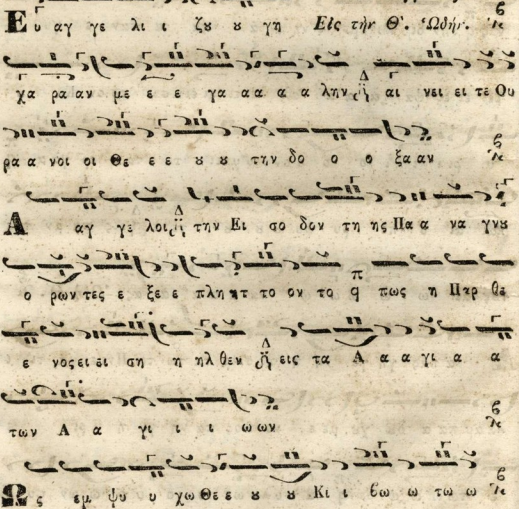 Ευ αγ γε λι ι ζου ου γη Εἰς τὴν Θ΄. ᾨδήν.
χα ρα αν με ε ε γα α α α λην αι νει ει τε Ου
ρα α νοι οι Θε ε ε ου ου την δο ο ο ξα αν
Α αγ γε λοι την Ει σο δον τη ης Πα α να γνου
ο ρων τες ε ξε ε πλητ το ον το πως η Παρ θε
ε νος ει ει ση η ηλ θεν εις τα Α α α γι α α
των Α α γι ι ι ω ων
Ως εμ ψυ υ χω Θε ε ου ου Κι ι βω ω τω ω